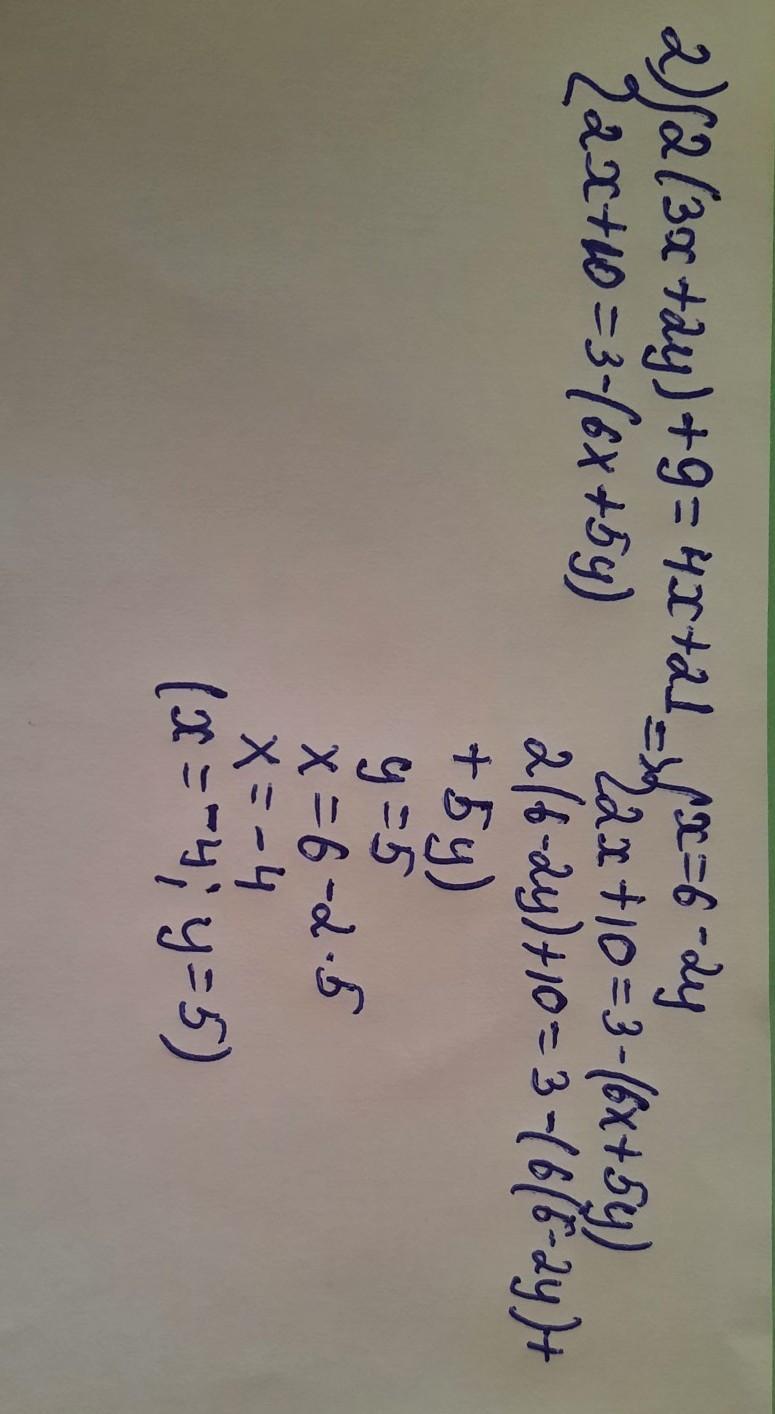 2) { 2(3x+2y)+9=4x+21 => { x=6-2y
{ 2x+10=3-(6x+5y) { 2x+10=3-(6x+5y)
2(6-2y)+10=3-(6(6-2y)+
+5y)
y=5
x=6-2·5
x=-4
(x=-4; y=5)